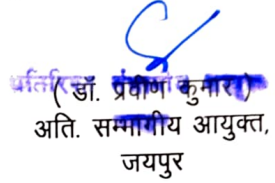 ( डॉ. प्रवीण कुमार )
अति. सम्भागीय आयुक्त,
जयपुर